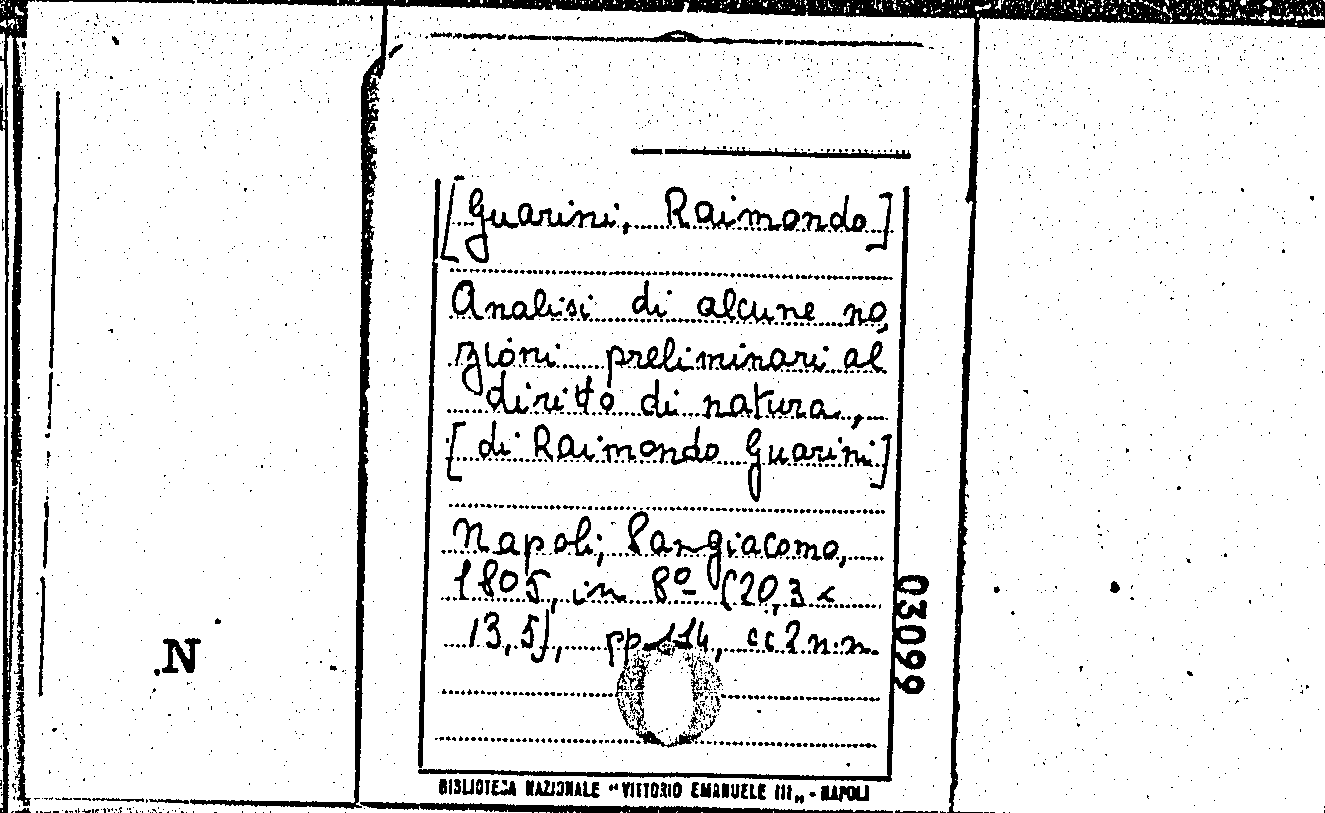 [Guarini, Raimondo]
Analisi di alcune no
zioni preliminari al
diritto di natura,
[di Raimondo Guarini]
Napoli; Sangiacomo,
1805, in 8º (20,3 x
13,5), pp. 114, cc 2 n.n.
03099
.N
BIBLIOTECA NAZIONALE "VITTORIO EMANUELE III„ - NAPOLI